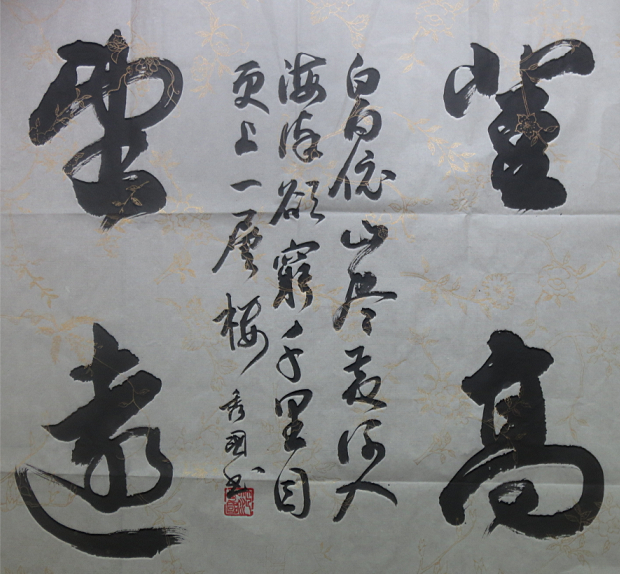 登高
白日依山尽黄河入
海流欲窮千里目
更上一層楼
秀国书
望遠